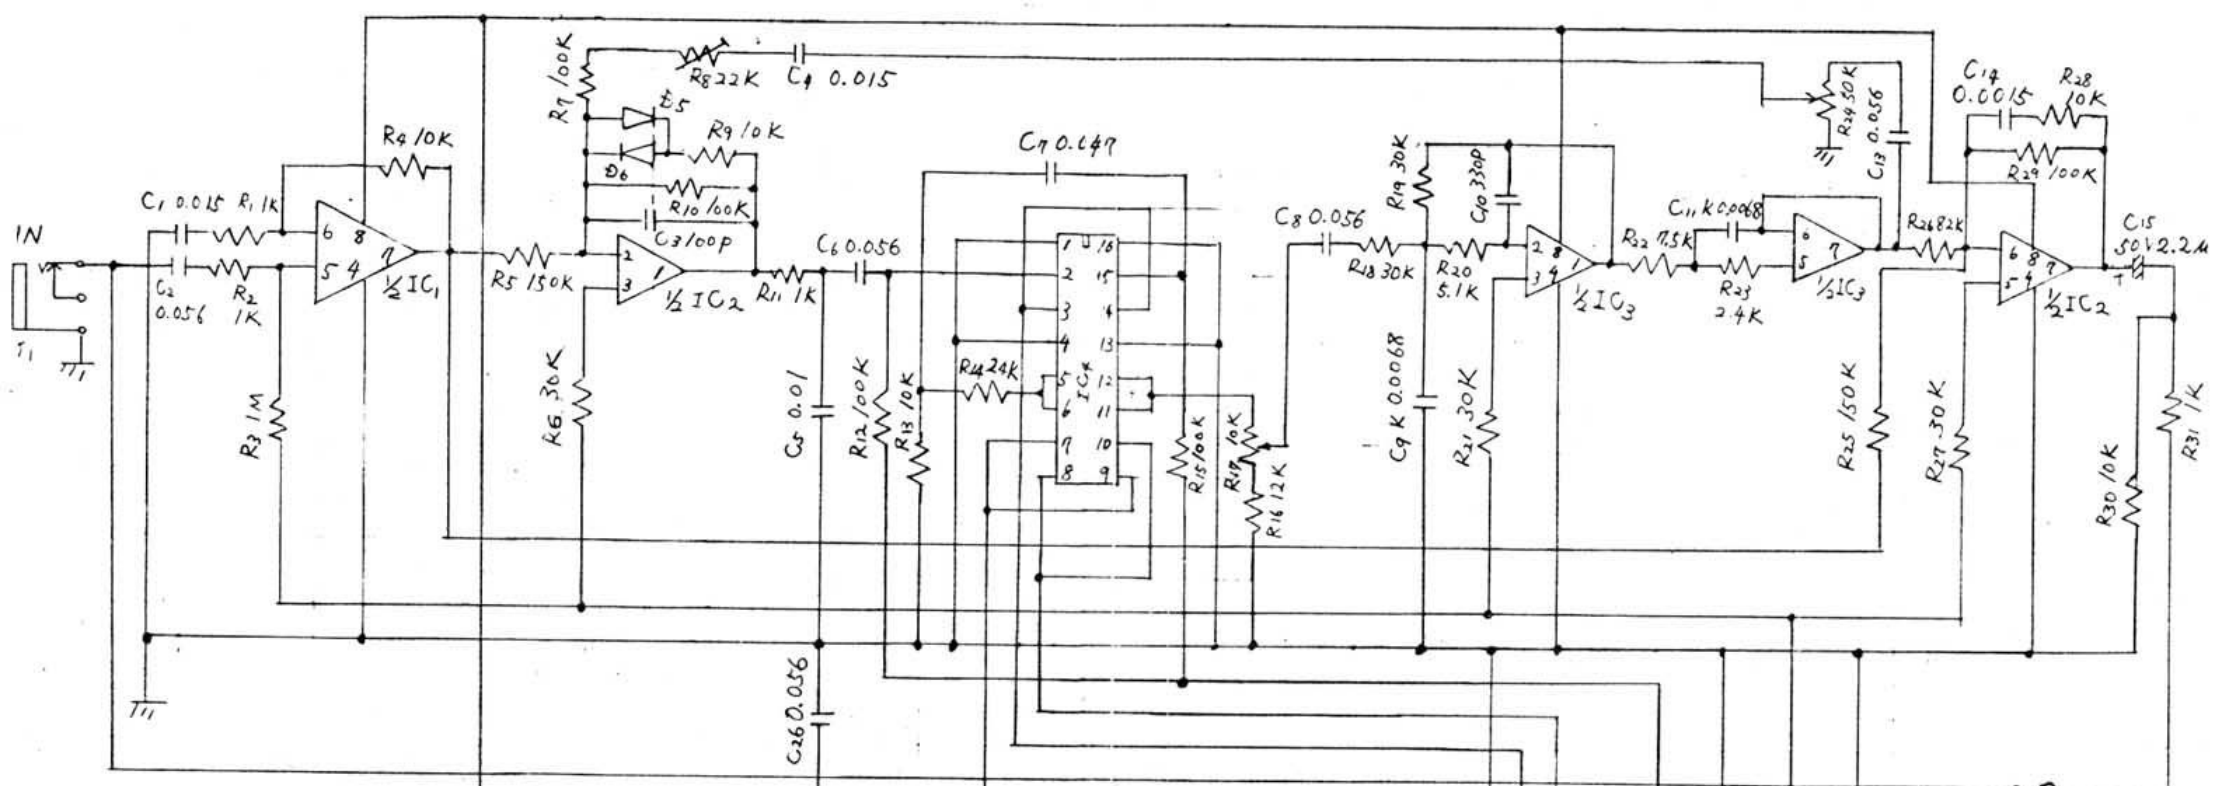 IN
T1
C1 0.015
R1 1K
C2
0.056
R2
1K
R3 1M
R4 10K
6
5
8
4
7
1/2 IC1
R5 150K
R6 30K
R7 100K
R8 22K
C4 0.015
D5
D6
R9 10K
R10 100K
C3 100P
2
3
1
1/2 IC2
R11 1K
C6 0.056
C5 0.01
C26 0.056
R12 100K
R13 10K
C7 0.047
R14 24K
1
2
3
4
5
6
7
8
IC4
16
15
14
13
12
11
10
9
R15 100K
R17 10K
R16 12K
C8 0.056
R18 30K
R19 30K
C10 330P
R20
5.1K
C9 K 0.0068
R21 30K
2
3
8
4
1
1/2 IC3
R22 7.5K
C11 K 0.0068
R23
2.4K
6
5
7
1/2 IC3
R24 50K
C13 0.056
R26 82K
R25 150K
R27 30K
C14
0.0015
R28
10K
R29 100K
6
5
8
4
7
1/2 IC2
C15
50V 2.2M
+
R30 10K
R31 1K